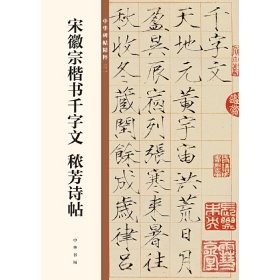 千字文
天地元黄宇宙洪荒日月
盈昃辰宿列張寒來暑往
秋收冬藏閏餘成歲律吕
中华碑帖精粹
宋徽宗楷书千字文 秾芳诗帖
中华书局